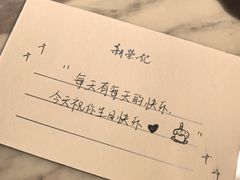 新荣记
“每天有每天的快乐，
今天祝你生日快乐